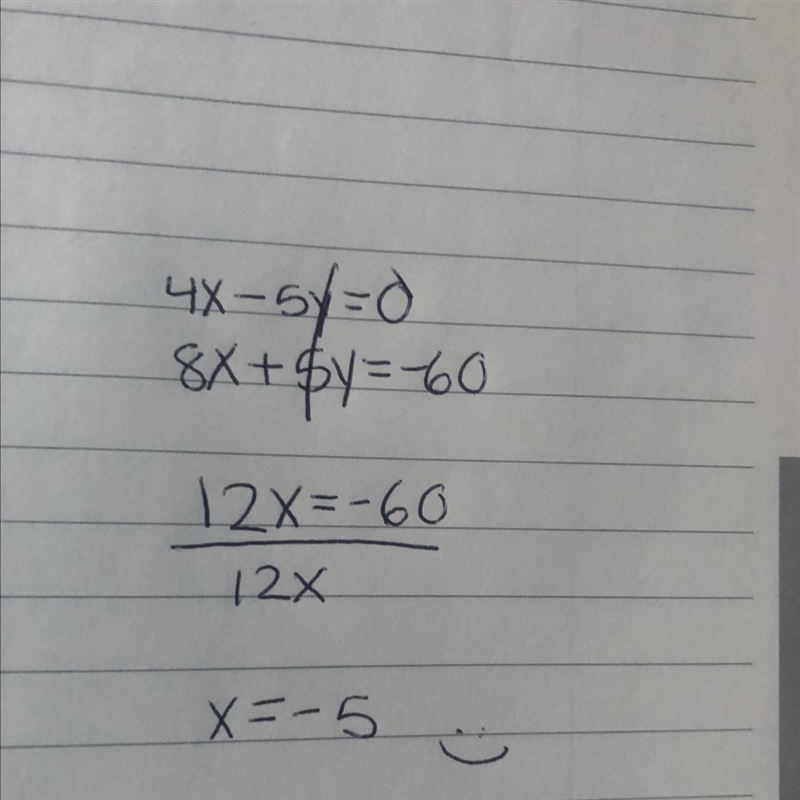 4x-5y=0
8x+5y=-60
12x=-60
12x
x=-5